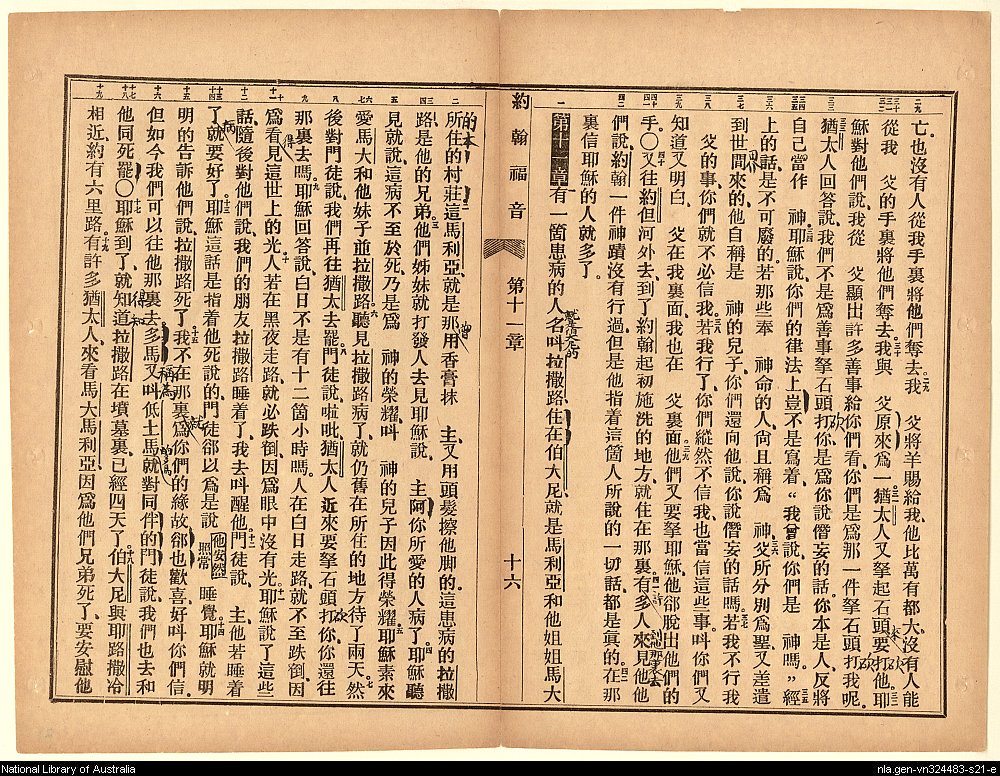 亡也沒有人從我手裏將他們奪去我　父將羊賜給我他比萬有都大沒有人能
從我　父的手裏將他們奪去我與　父原來爲一猶太人又拏起石頭要打他耶
穌對他們說我從　父顯出許多善事給你們看你們是爲那一件拏石頭打我呢
猶太人回答說我們不是爲善事拏石頭打你是爲你說僭妄的話你本是人反將
自己當作　神耶穌說你們的律法上豈不是寫着“我曾說你們是　神嗎”經
上的話是不可廢的若那些奉　神命的人尙且稱爲　神父所分別爲聖又差遣
到世間來的他自稱是　神的兒子你們還向他說你說僭妄的話嗎若我不行我
父的事你們就不必信我若我行了你們縱然不信我也當信這些事呌你們又
知道又明白　父在我裏面我也在　父裏面他們又要拏耶穌他卻脫出他們的
手〇又往約但河外去到了約翰起初施洗的地方就住在那裏有多人來見他他
們說約翰一件神蹟沒有行過但是他指着這箇人所說的一切話都是眞的在那
裏信耶穌的人就多了
第十一章有一箇患病的人名呌拉撒路住在伯大尼就是馬利亞和他姐姐馬大
約翰福音　第十一章　十六
所住的村莊這馬利亞就是那用香膏抹　主又用頭髮擦他脚的這患病的拉撒
路是他的兄弟他們姊妹就打發人去見耶穌說　主阿你所愛的人病了耶穌聽
見就說這病不至於死乃是爲　神的榮耀呌　神的兒子因此得榮耀耶穌素來
愛馬大和他妹子並拉撒路聽見拉撒路病了就仍舊在所住的地方待了兩天然
後對門徒說我們再往猶太去罷門徒說啦吡猶太人近來要拏石頭打你你還往
那裏去嗎耶穌回答說白日不是有十二箇小時嗎人在白日走路就不至跌倒因
爲看見這世上的光人若在黑夜走路就必跌倒因爲眼中沒有光耶穌說了這些
話隨後對他們說我們的朋友拉撒路睡着了我去呌醒他門徒說　主他若睡着
了就要好了耶穌這話是指着他死說的門徒卻以爲是說　照常　睡覺耶穌就明
明的告訴他們說拉撒路死了我不在那裏爲你們的緣故卻也歡喜好呌你們信
但如今我們可以往他那裏去多馬又呌低土馬就對同伴的門徒說我們也去和
他同死罷〇耶穌到了就知道拉撒路在墳墓裏已經四天了伯大尼與耶路撒冷
相近約有六里路有許多猶太人來看馬大馬利亞因爲他們兄弟死了要安慰他
National Library of Australia
nla.gen-vn324483-s21-e